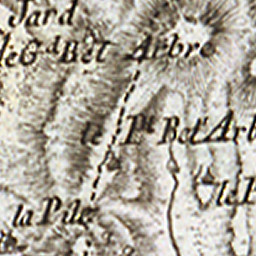 Jard
le G.d Bel Arbre
le P.t Bel Arb
la Pile
le